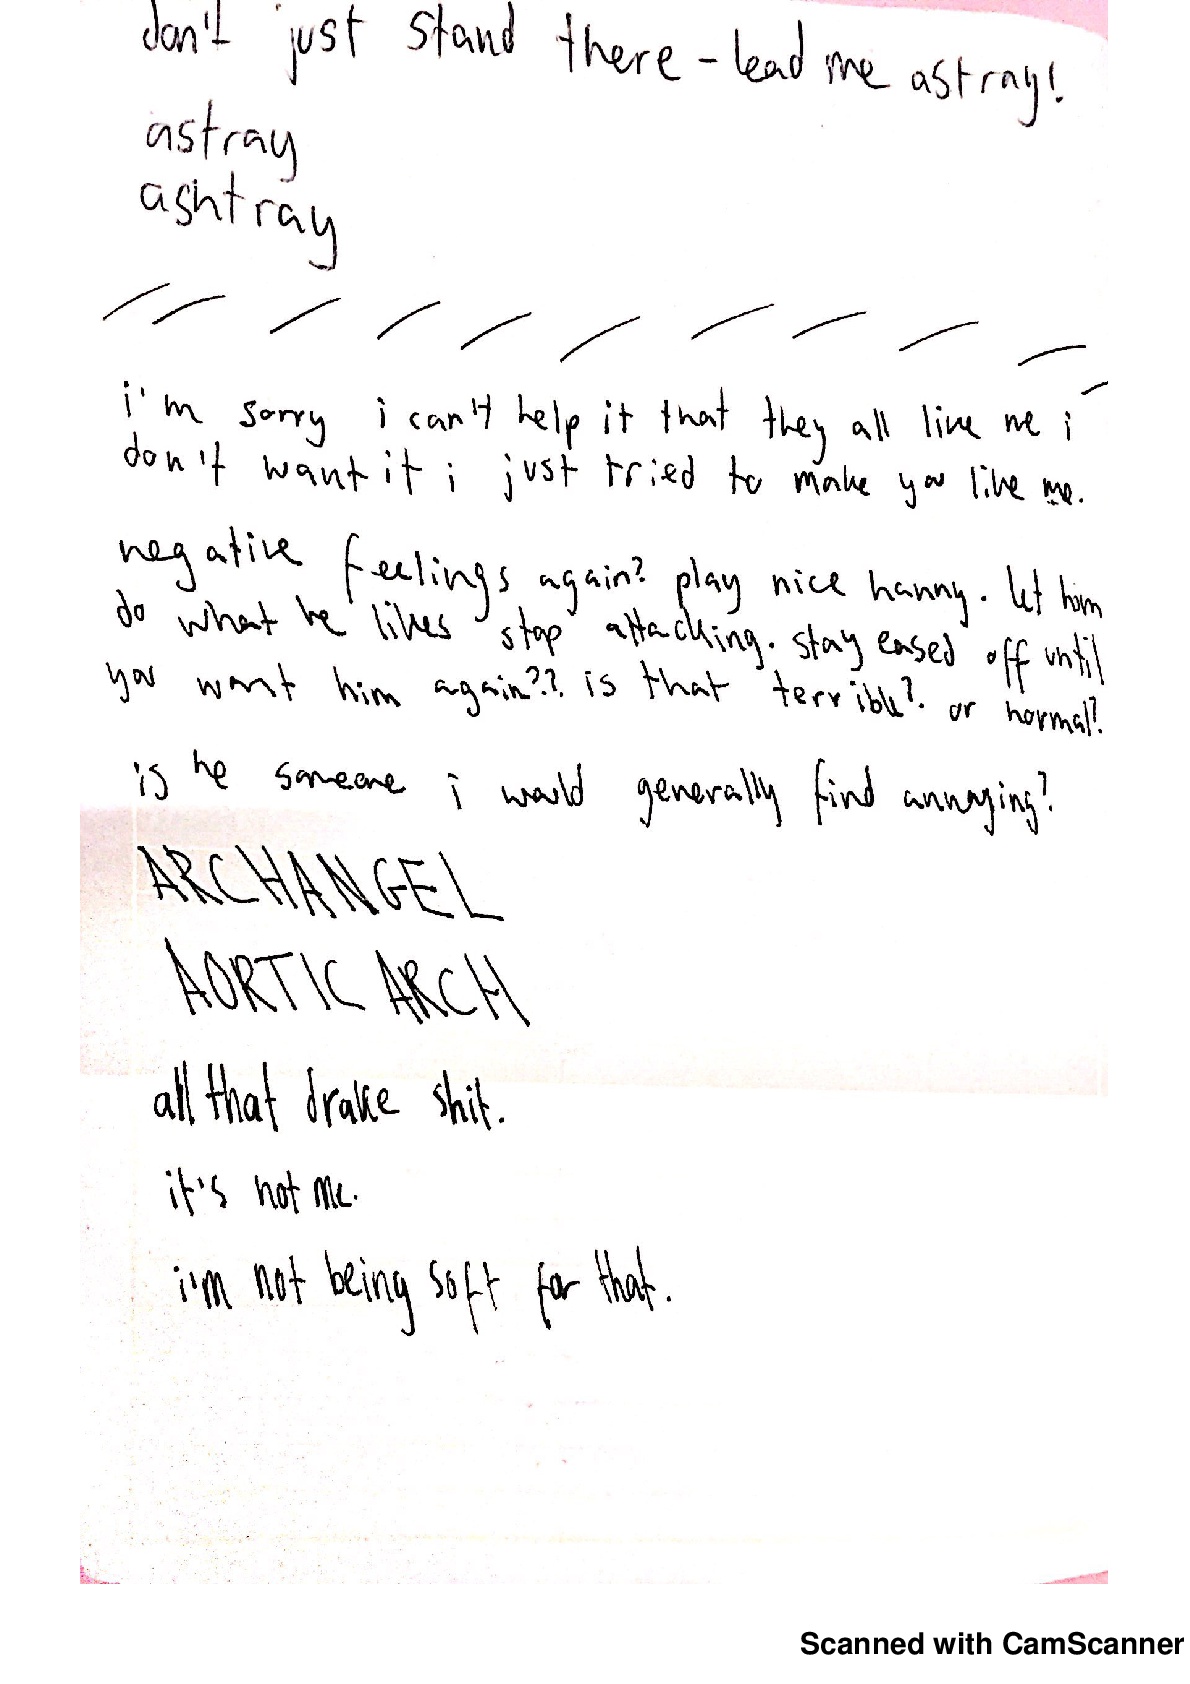 don't just stand there - lead me astray!
astray
ashtray
i'm sorry i can't help it that they all like me i
don't want it i just tried to make you like me.
negative feelings again? play nice hanny. let him
do what he likes stop attacking. stay eased off until
you want him again?? is that terrible? or normal?
is he someone i would generally find annoying?
ARCHANGEL
AORTIC ARCH
all that drake shit.
it's not me.
i'm not being soft for that.
Scanned with CamScanner